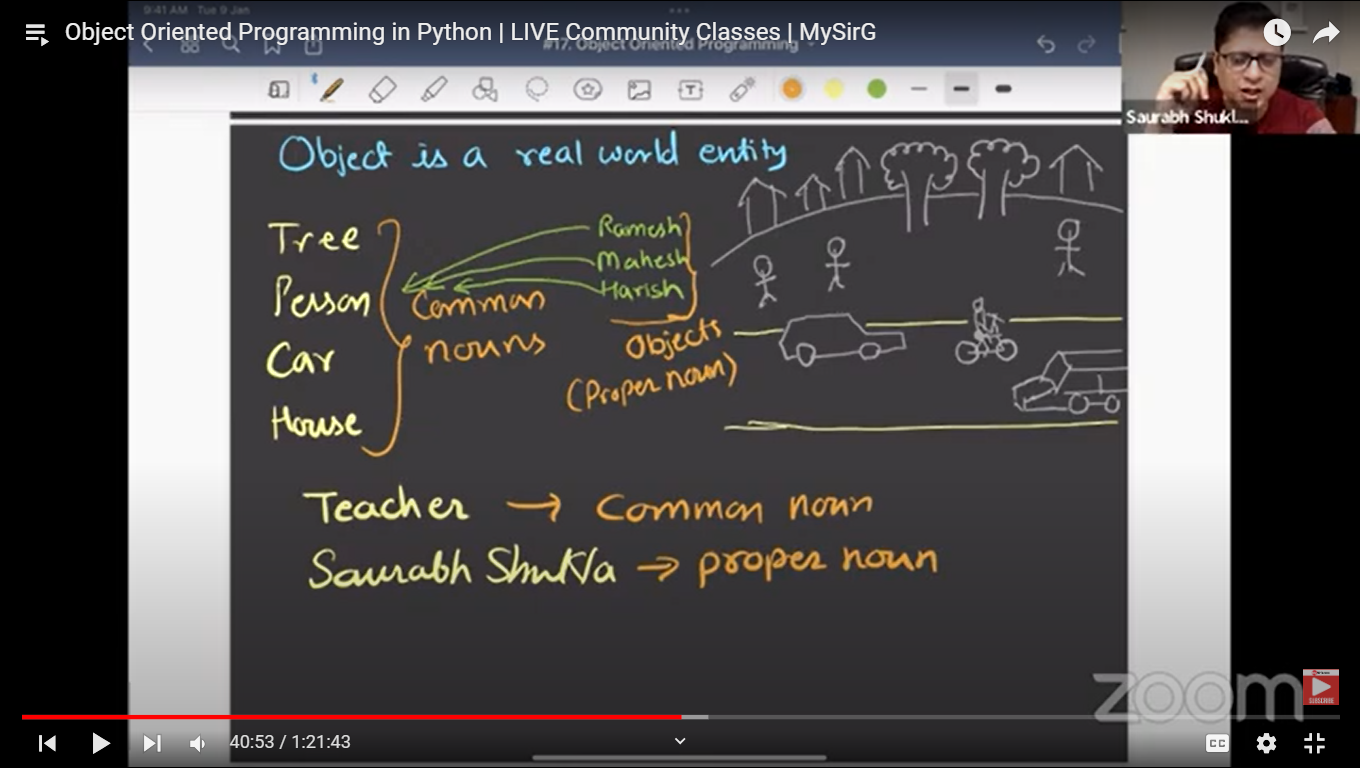 9:41 AM Tue 9 Jan
Object Oriented Programming in Python | LIVE Community Classes | MySirG
#17. Object Oriented Programming
Saurabh Shukl...
Object is a real world entity
Tree
Person
Car
House
Common
nouns
Ramesh
Mahesh
Harish
Objects
(Proper noun)
Teacher → Common noun
Saurabh Shukla → proper noun
zoom
SUBSCRIBE
40:53 / 1:21:43
CC